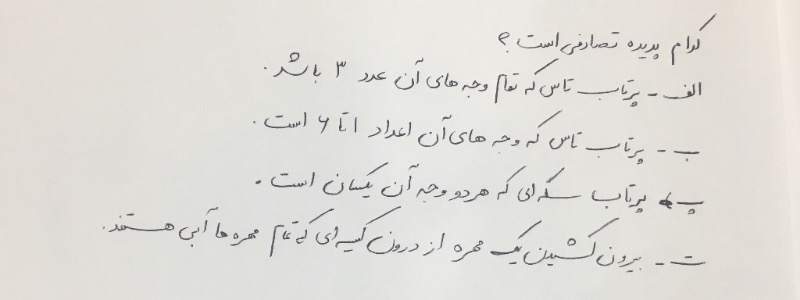 کدام پدیده تصادفی است؟
الف - پرتاب تاس که تمام وجه های آن عدد ۳ باشد.
ب - پرتاب تاس که وجه های آن اعداد ۱ تا ۶ است.
پ - پرتاب سکه ای که هر دو وجه آن یکسان است.
ت - بیرون کشیدن یک مهره از درون کیسه ای که تمام مهره ها آبی هستند.